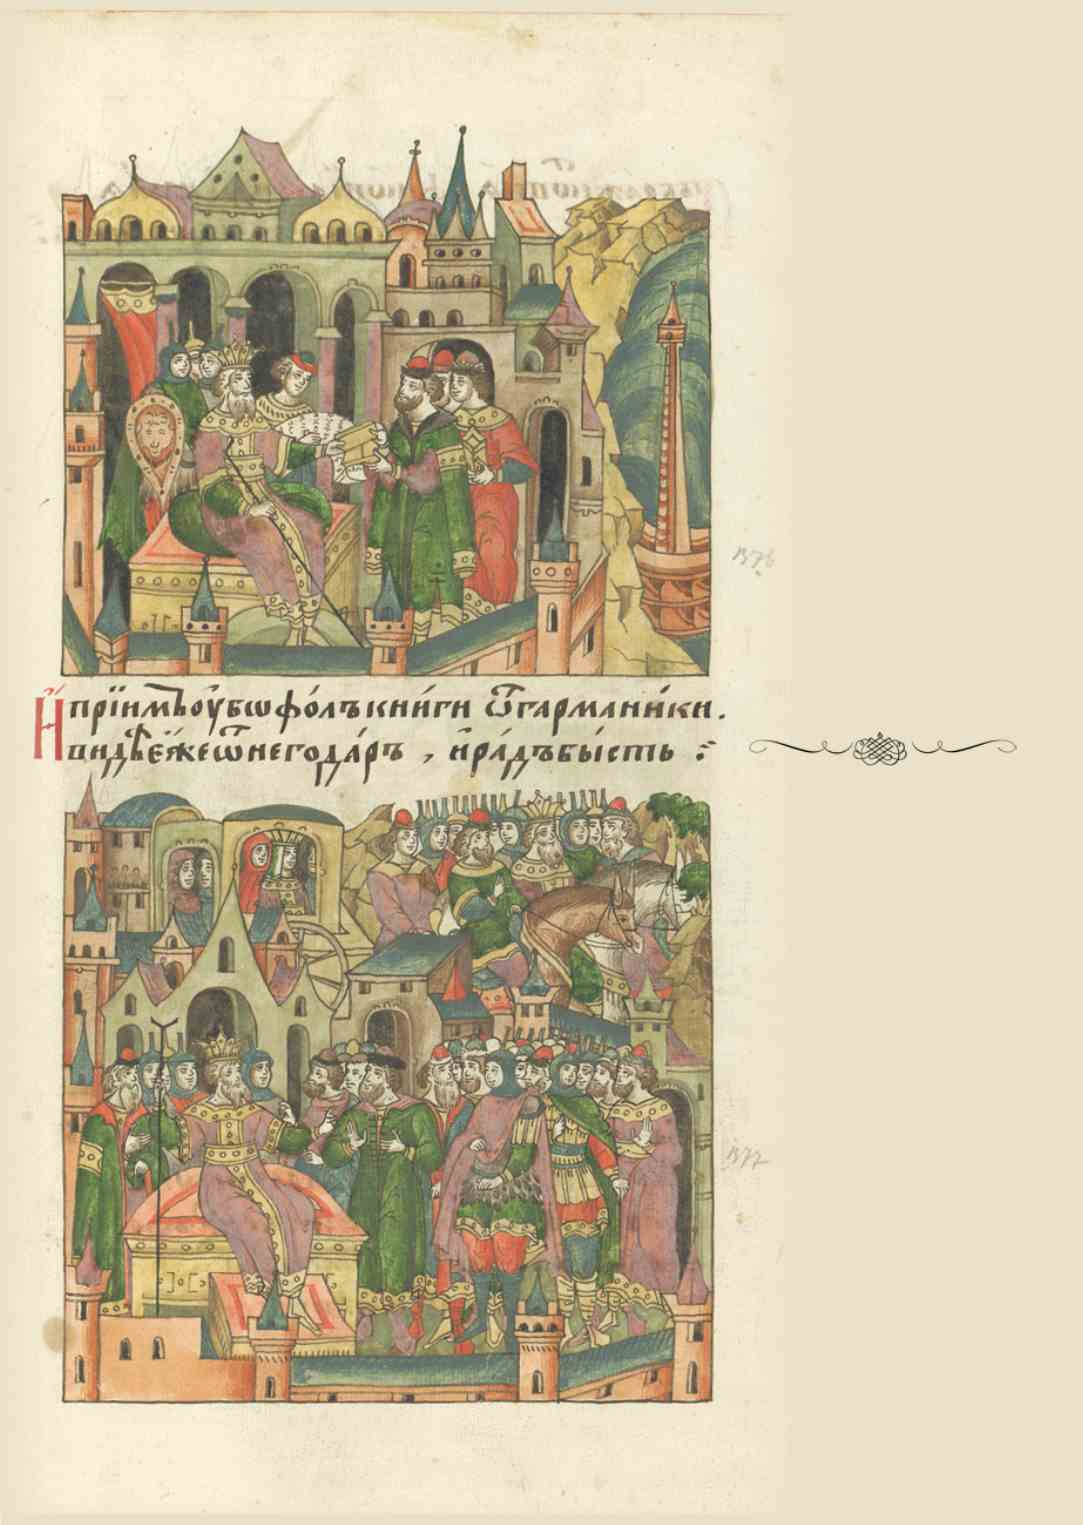 И҆ прїи́мъ ѹ҆́бѡ фо́лъ кни́ги ѿ гармани́ки.
и҆ видѣ́въ ꙗ҆́же ѿ него да́ръ, и҆ ра́дъ бы́сть
1376
1377